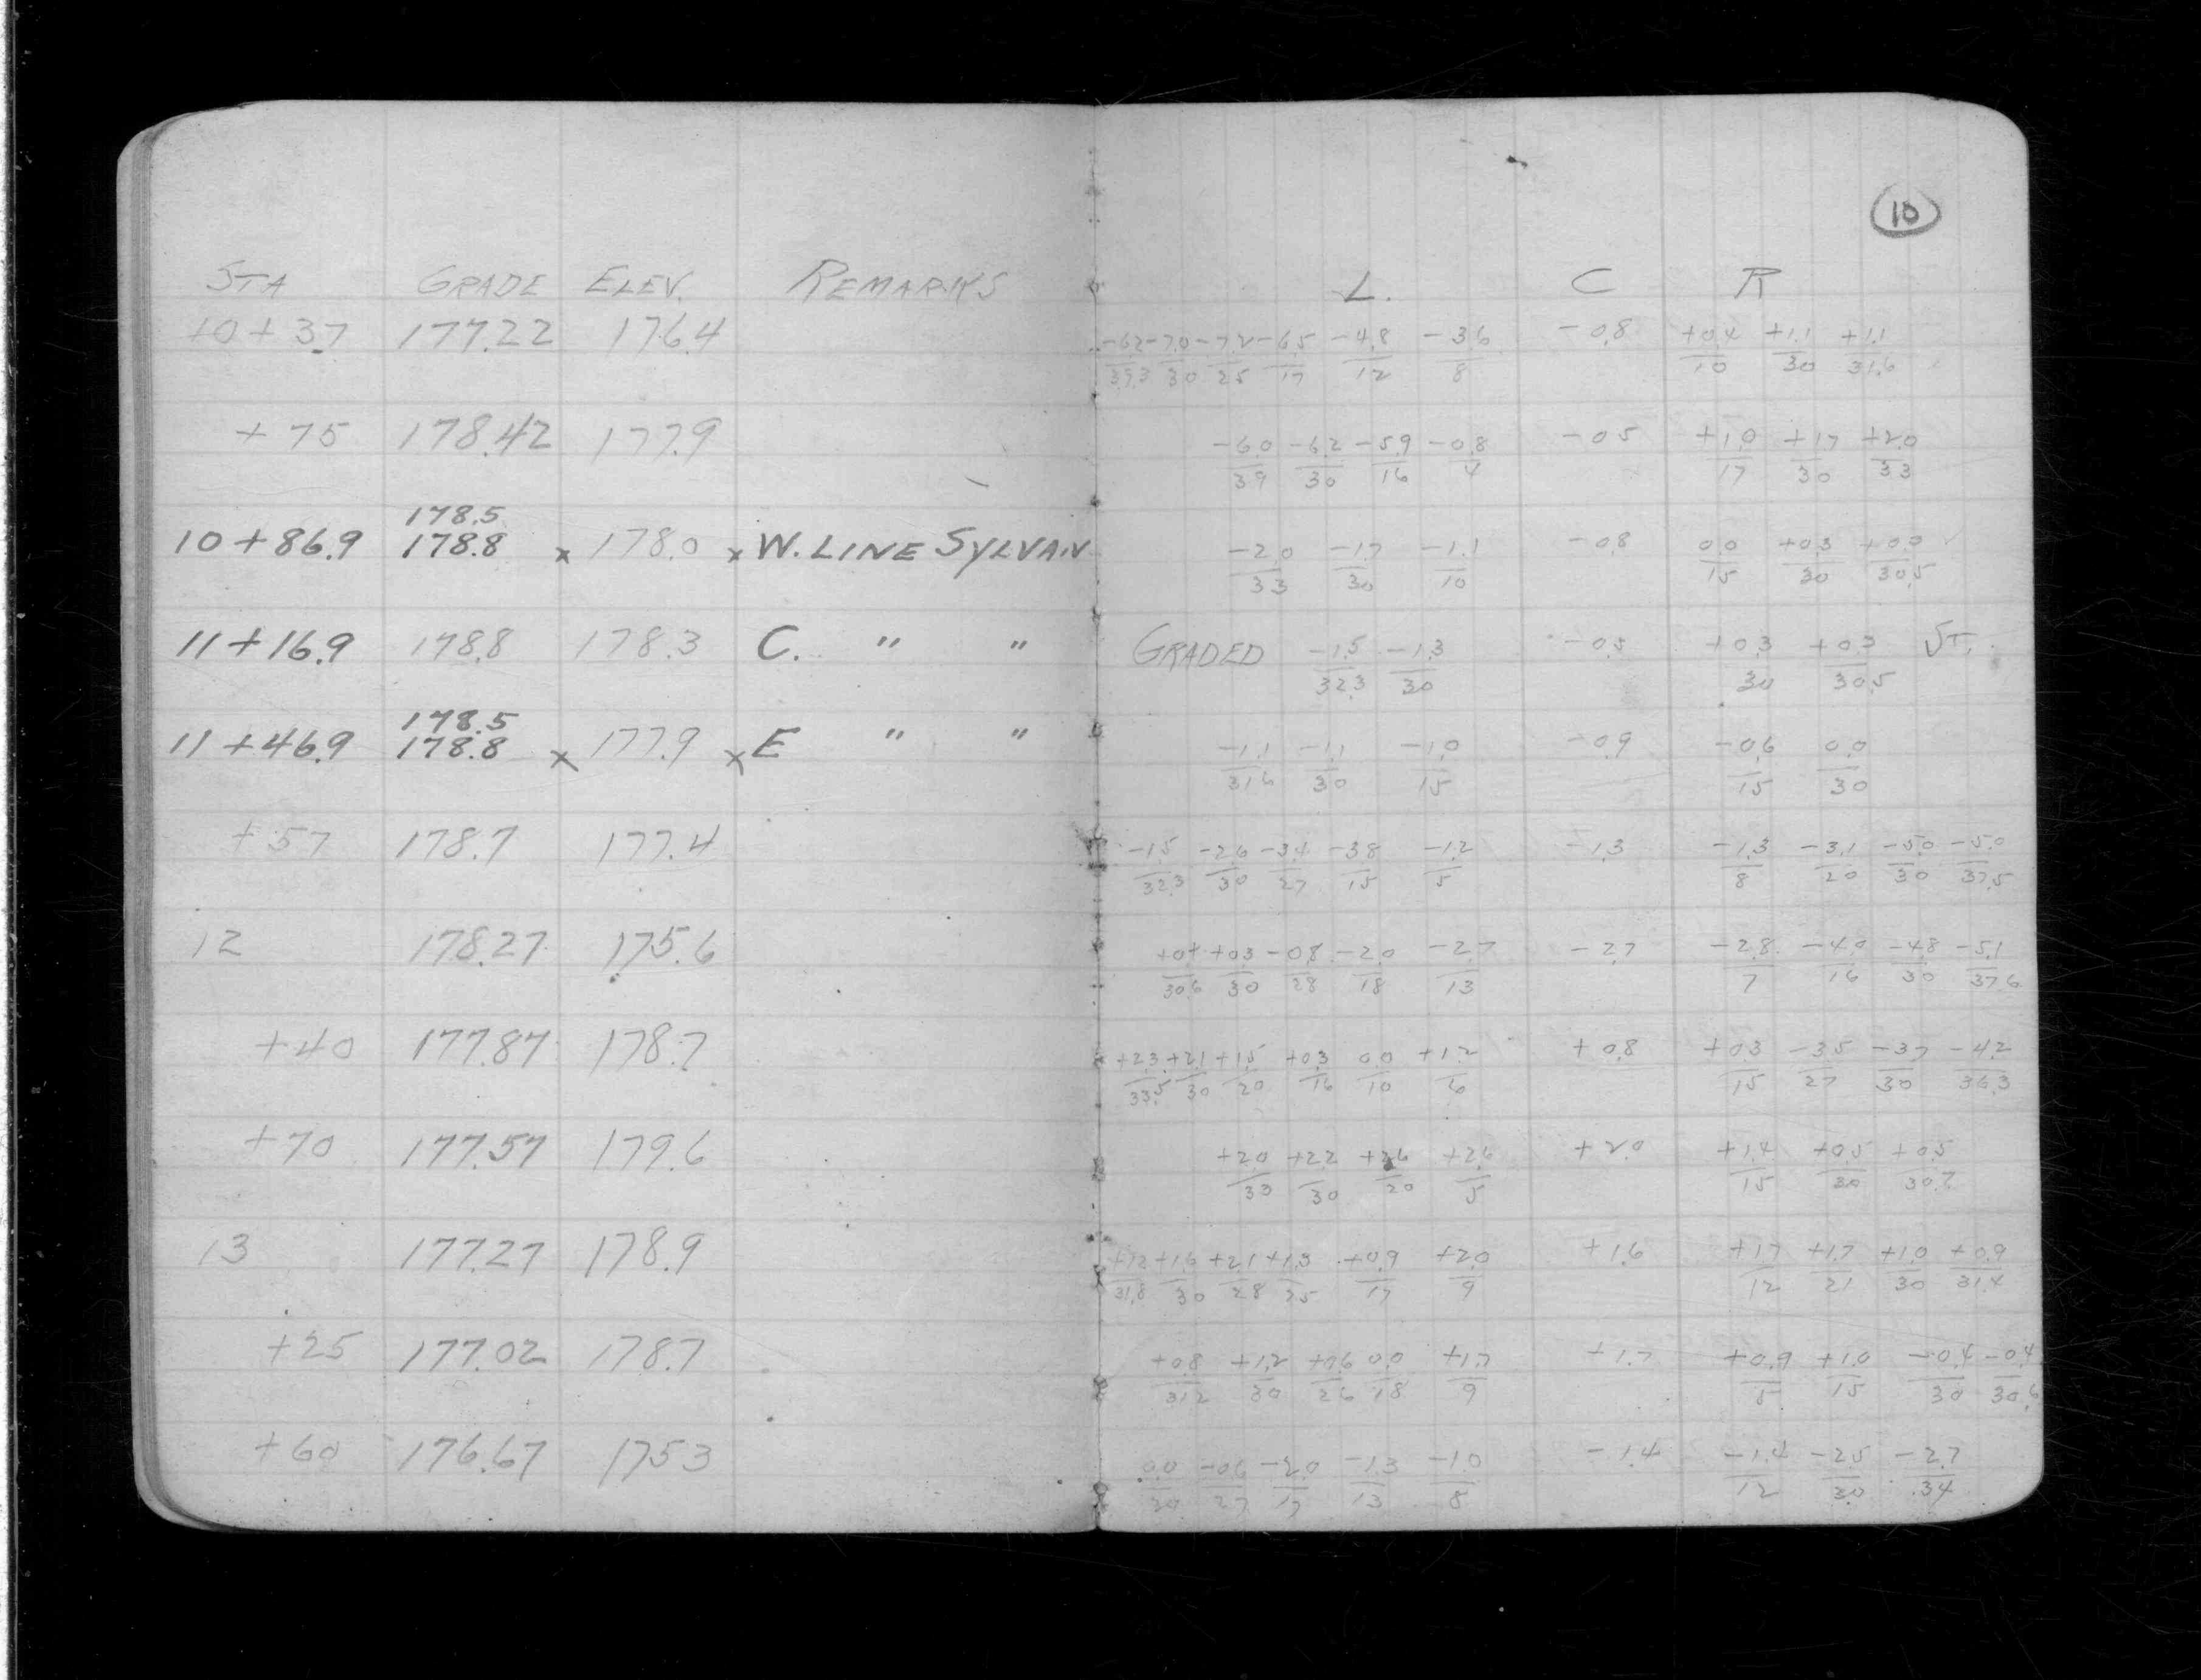 10
STA GRADE ELEV. REMARKS L. C R
10+37 177.22 176.4 -6.2/39.3 -7.0/30 -7.2/25 -6.5/17 -4.8/12 -3.6/8 -0.8 +0.4/10 +1.1/30 +1.1/31.6
+75 178.42 177.9 -6.0/39 -6.2/30 -5.9/16 -0.8/4 -0.5 +1.0/17 +1.7/30 +2.0/33
178.5
10+86.9 178.8 x 178.0 x W. LINE SYLVAN -2.0/33 -1.7/30 -1.1/10 -0.8 0.0/15 +0.3/30 +0.3/30.5
11+16.9 178.8 178.3 C. " " GRADED -1.5/32.3 -1.3/30 -0.5 +0.3/30 +0.3/30.5 ST.
178.5
11+46.9 178.8 x 177.9 x E " " -1.1/31.6 -1.1/30 -1.0/15 -0.9 -0.6/15 0.0/30
+57 178.7 177.4 -1.5/32.3 -2.6/30 -3.4/27 -3.8/15 -1.2/5 -1.3 -1.3/8 -3.1/20 -5.0/30 -5.0/37.5
12 178.27 175.6 +0.4/30.6 +0.3/30 -0.8/28 -2.0/18 -2.7/13 -2.7 -2.8/7 -4.9/16 -4.8/30 -5.1/37.6
+40 177.87 178.7 +2.3/33.5 +2.1/30 +1.5/20 +0.3/16 0.0/10 +1.2/6 +0.8 +0.3/15 -3.5/27 -3.7/30 -4.2/36.3
+70 177.57 179.6 +2.0/33 +2.2/30 +2.6/20 +2.6/5 +2.0 +1.4/15 +0.5/30 +0.5/30.7
13 177.27 178.9 +1.2/31.8 +1.6/30 +2.1/28 +1.3/25 +0.9/17 +2.0/9 +1.6 +1.7/12 +1.7/21 +1.0/30 +0.9/31.4
+25 177.02 178.7 +0.8/31.2 +1.2/30 +0.6/26 0.0/18 +1.7/9 +1.7 +0.9/5 +1.0/15 -0.4/30 -0.4/30.6
+60 176.67 175.3 0.0/30 -0.6/27 -2.0/17 -1.3/13 -1.0/8 -1.4 -1.4/12 -2.5/30 -2.7/34